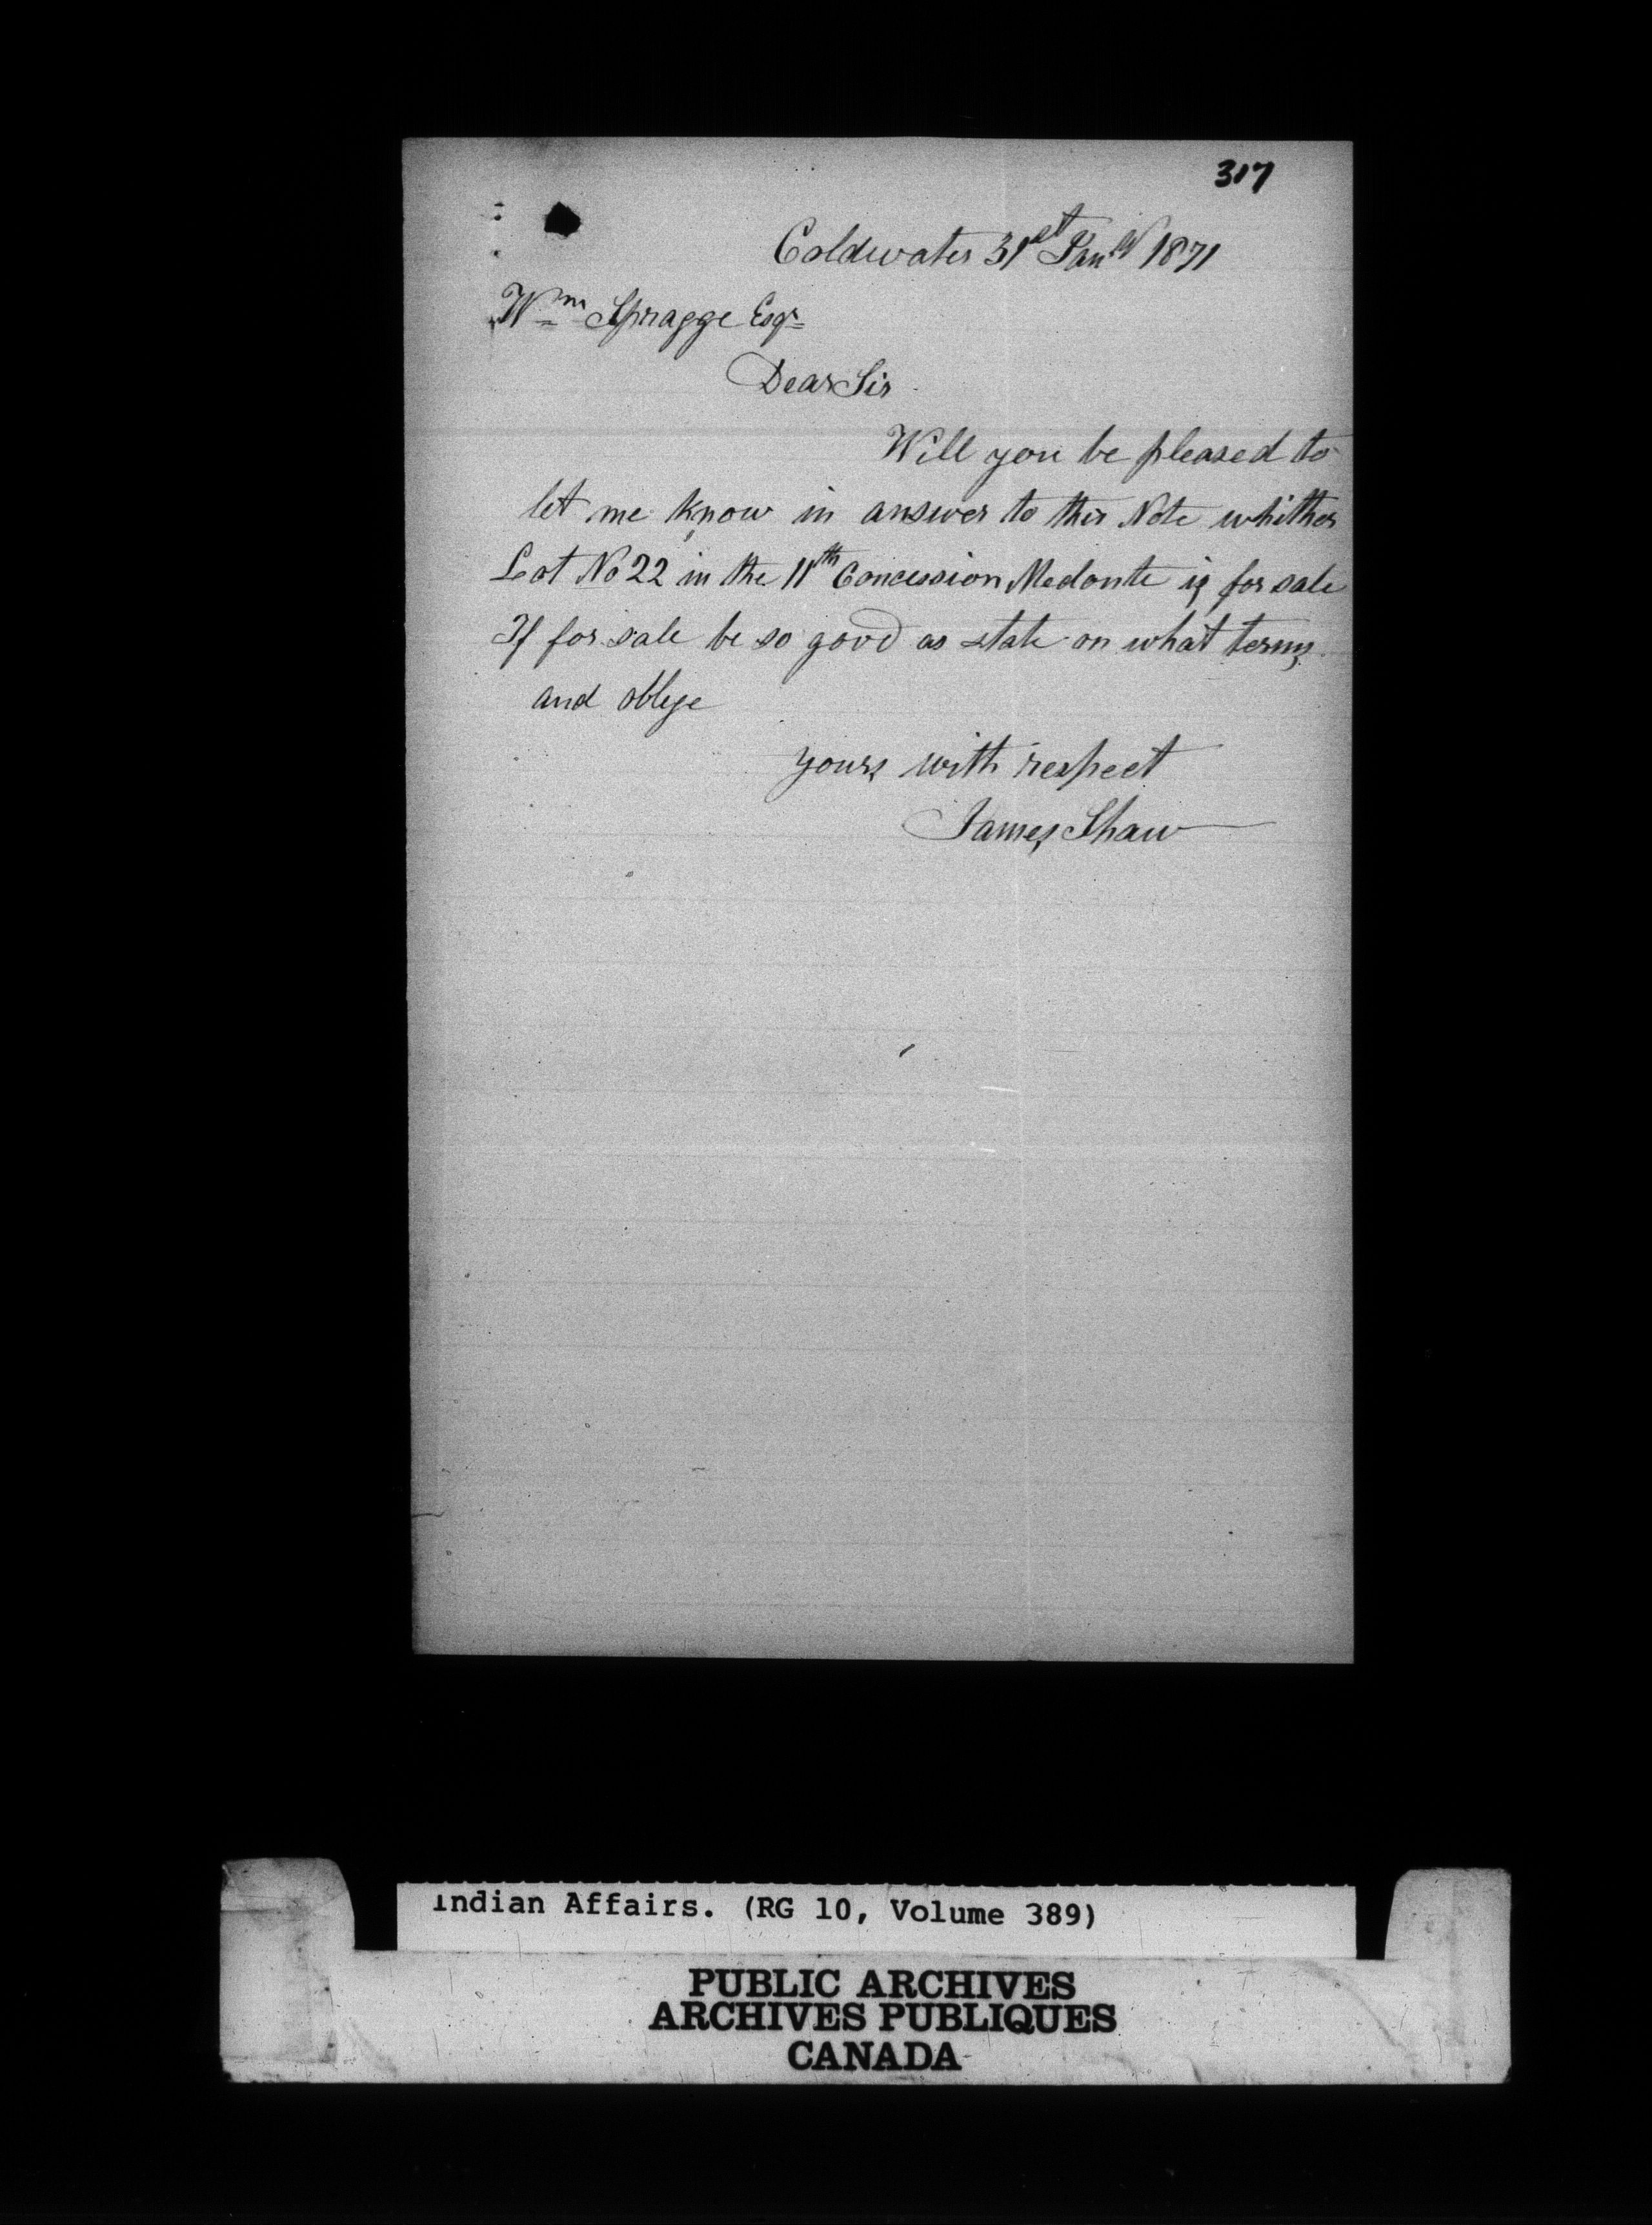 317
Coldwater 31st Jany 1871
Wm Spragge Esqr
Dear Sir
Will you be pleased to
let me know in answer to this Note whither
Lot No 22 in the 11th Concession Medonte is for sale
If for sale be so good as state on what terms
and oblege
yours with respect
James Shaw
Indian Affairs. (RG 10, Volume 389)
PUBLIC ARCHIVES
ARCHIVES PUBLIQUES
CANADA